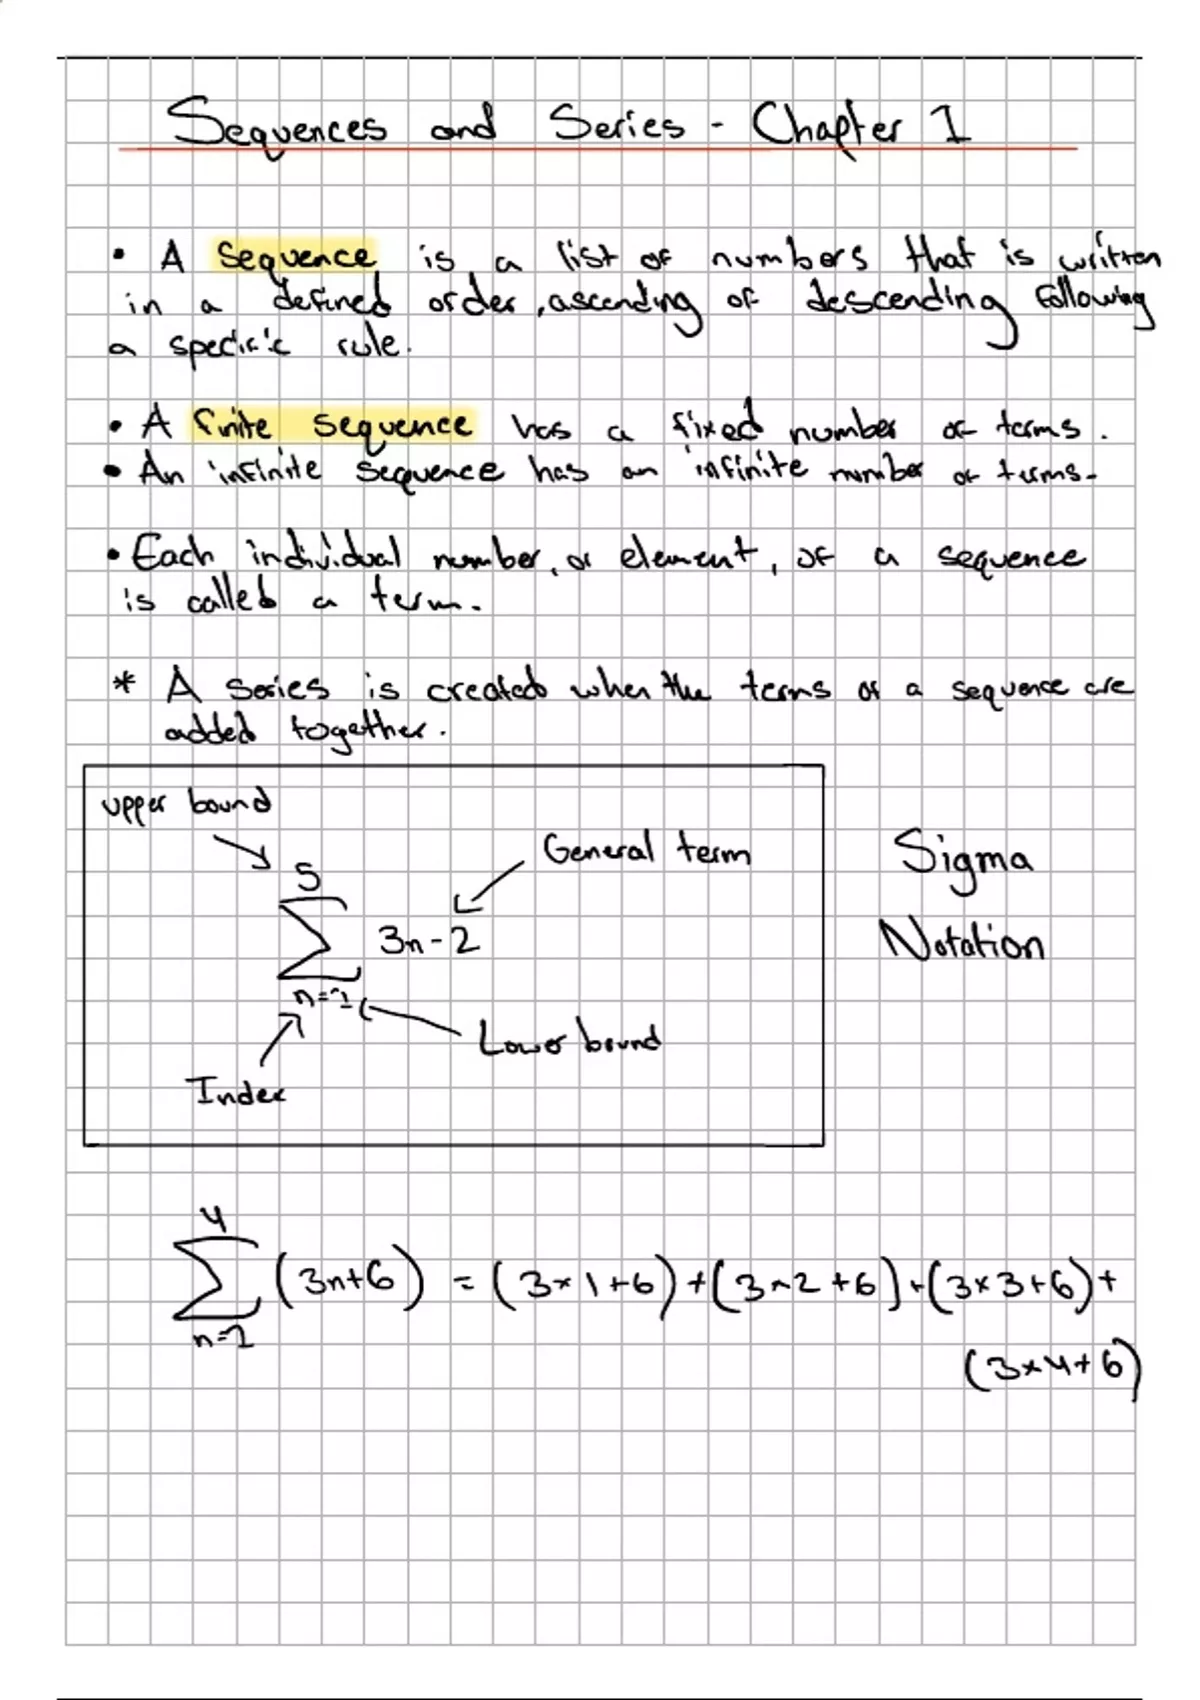 Sequences and Series - Chapter 1
• A sequence is a list of numbers that is written
in a defined order, ascending of descending following
a specific rule.
• A finite sequence has a fixed number of terms.
• An infinite sequence has an infinite number of terms.
• Each individual number, or element, of a sequence
is called a term.
* A series is created when the terms of a sequence are
added together.
upper bound
General term
5
∑ 3n-2
n=1
Lower bound
Index
Sigma
Notation
4
∑ (3n+6) = (3×1+6)+(3×2+6)+(3×3+6)+
n=1
(3×4+6)